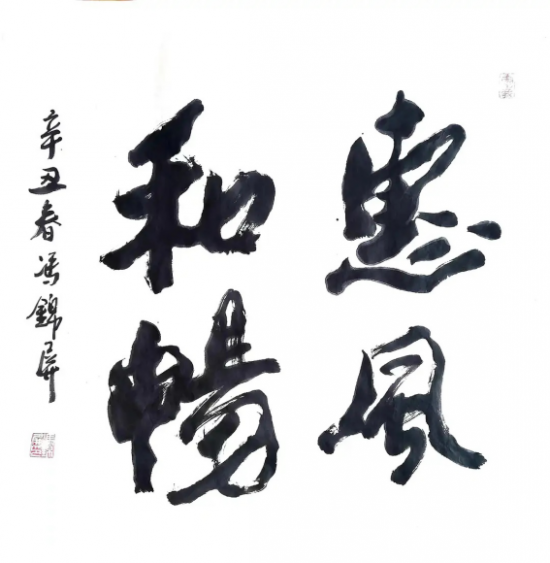 惠风
和暢
辛丑春冯錦屏